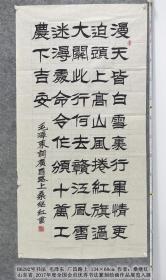 漫天皆白雪裏行軍情更
迫頭上高山風捲紅旗過
大關此行何去贛江風雪
迷漫處命令昨頒十萬工
農下吉安
毛澤東詞廣昌路上桑继红書
B6292号书法 毛泽东 广昌路上 134×68cm 作者:桑继红
山东省, 2017年度全国会员优秀书法篆刻绘画作品展览入选